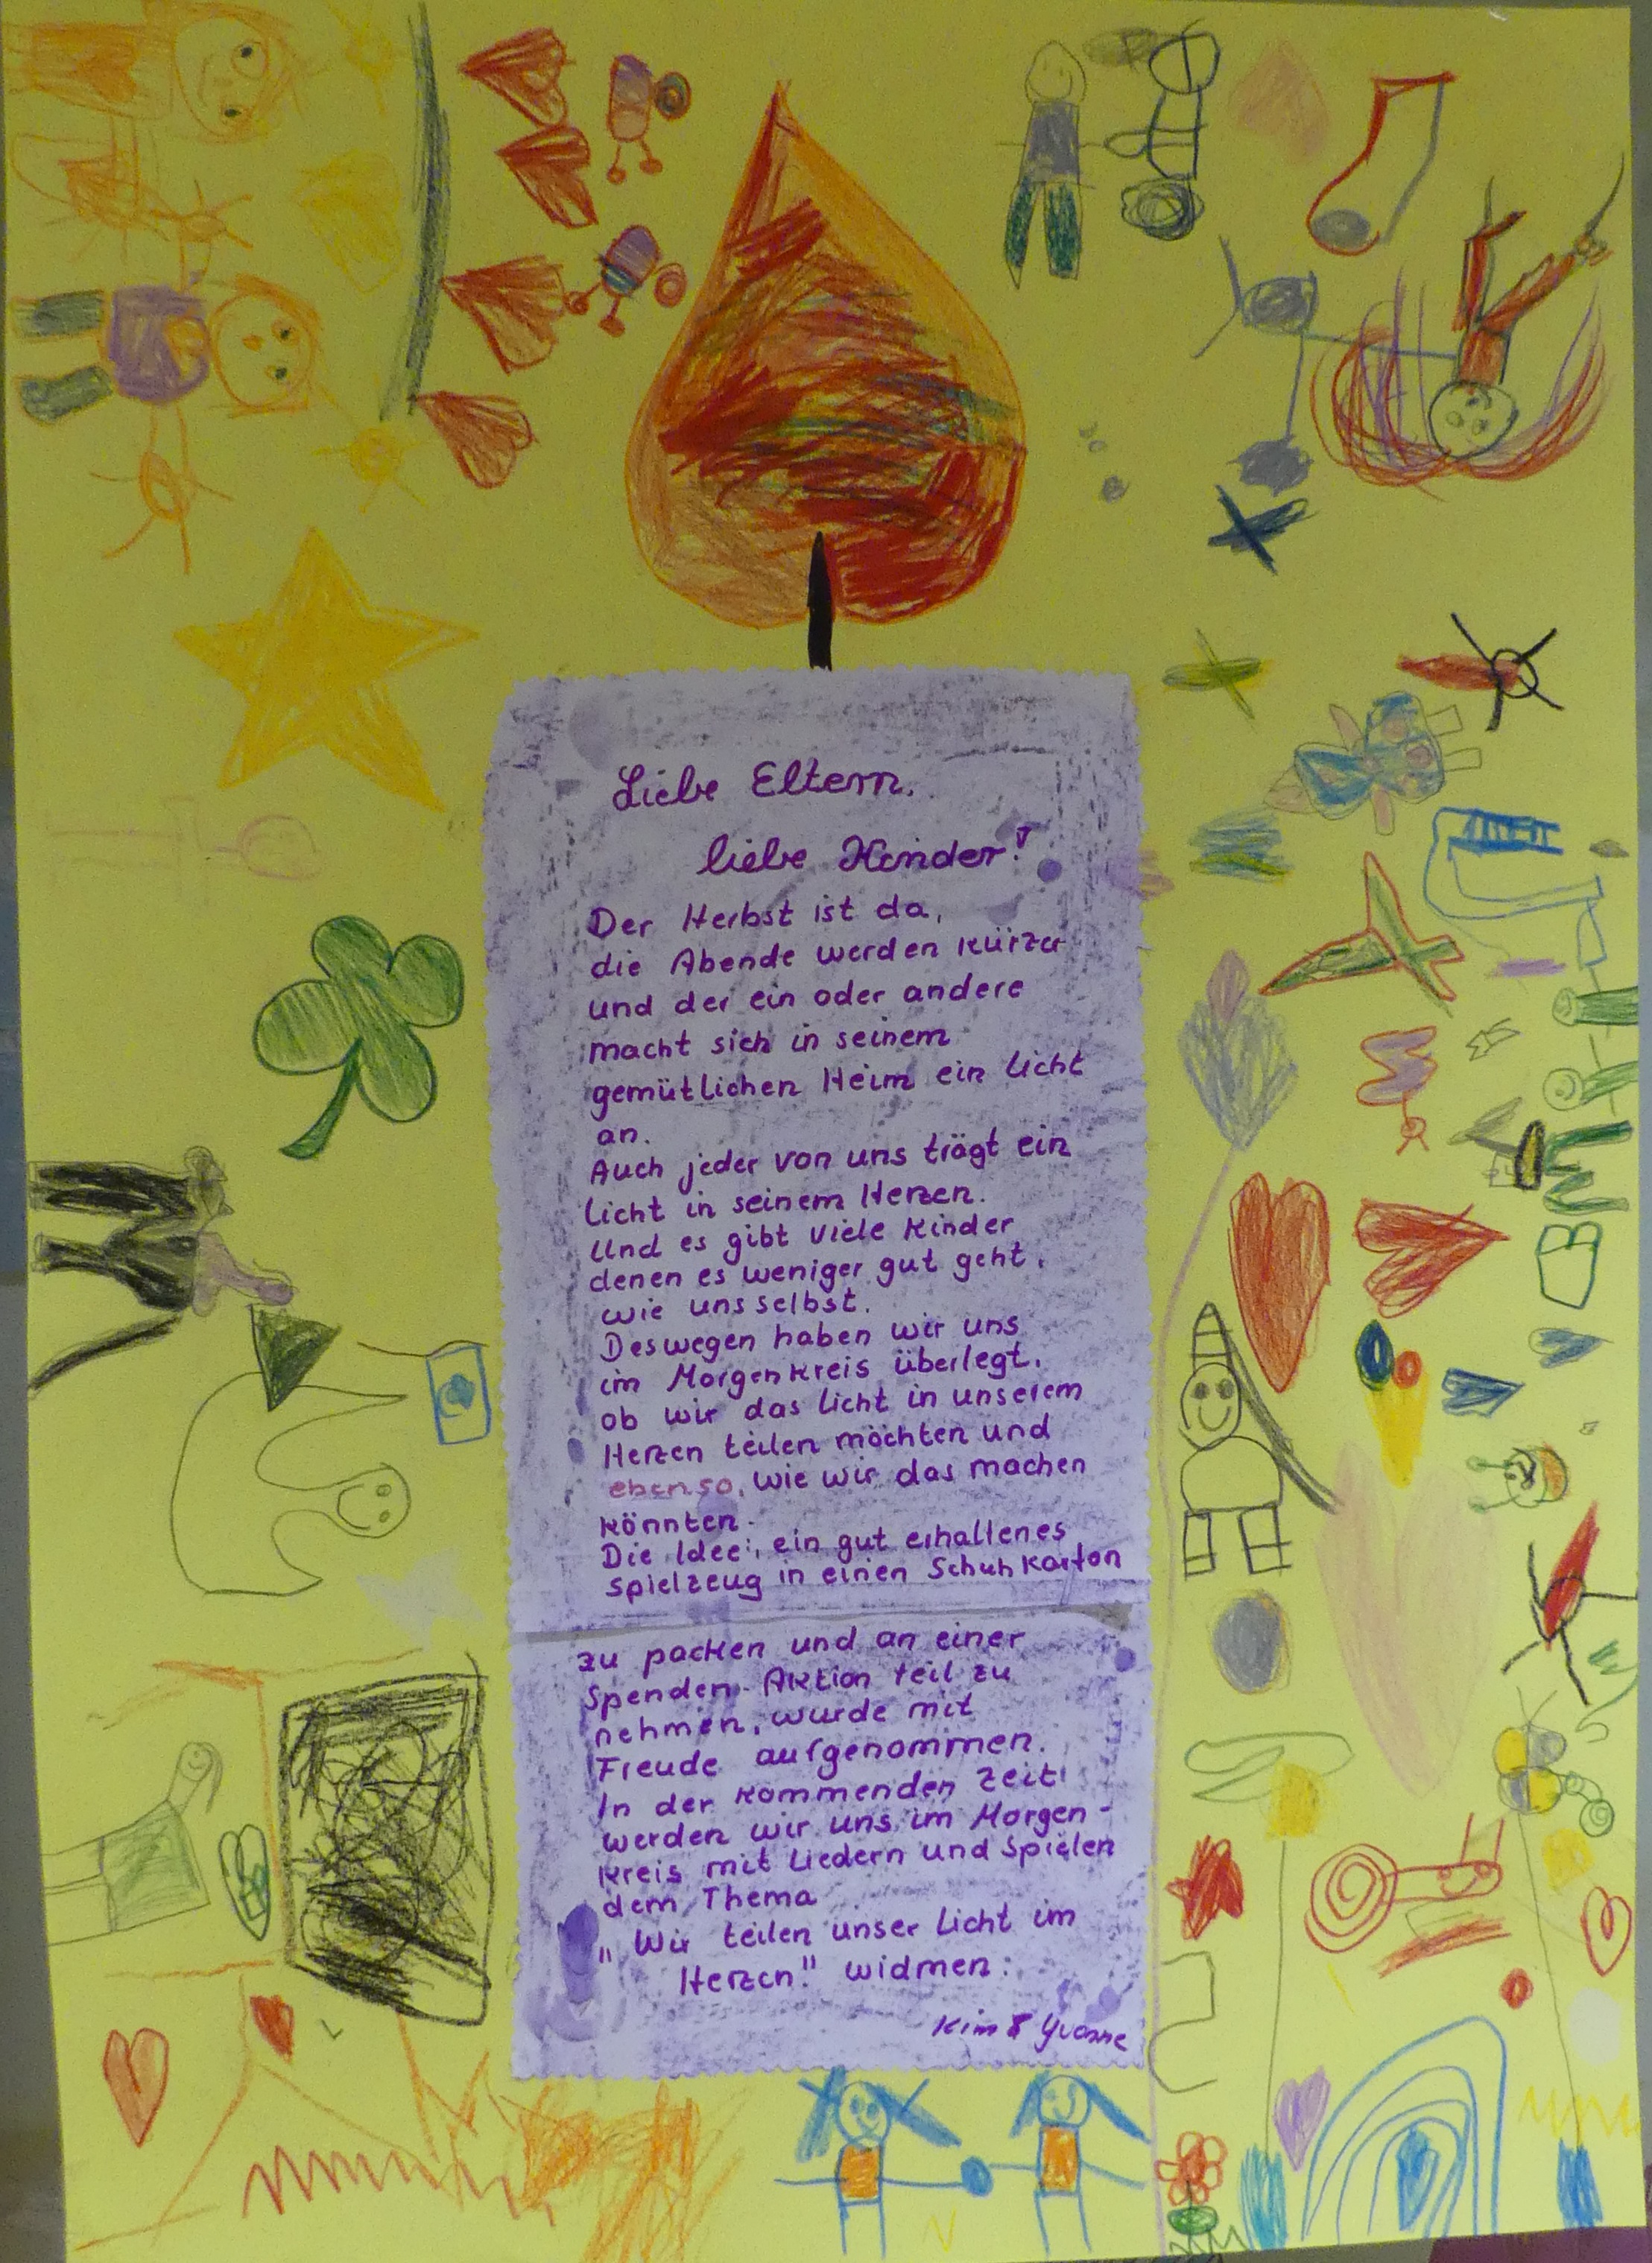 Liebe Eltern,
liebe Kinder!
Der Herbst ist da,
die Abende werden kürzer
und der ein oder andere
macht sich in seinem
gemütlichen Heim ein Licht
an.
Auch jeder von uns trägt ein
Licht in seinem Herzen.
Und es gibt viele Kinder
denen es weniger gut geht,
wie uns selbst.
Deswegen haben wir uns
im Morgenkreis überlegt,
ob wir das Licht in unserem
Herzen teilen möchten und
ebenso, wie wir das machen
könnten.
Die Idee, ein gut erhaltenes
Spielzeug in einen Schuhkarton
zu packen und an einer
Spenden-Aktion teil zu
nehmen, wurde mit
Freude aufgenommen.
In der kommenden Zeit
werden wir uns im Morgen-
kreis mit Liedern und Spielen
dem Thema
„Wir teilen unser Licht im
Herzen!" widmen.
Kim & Yvonne